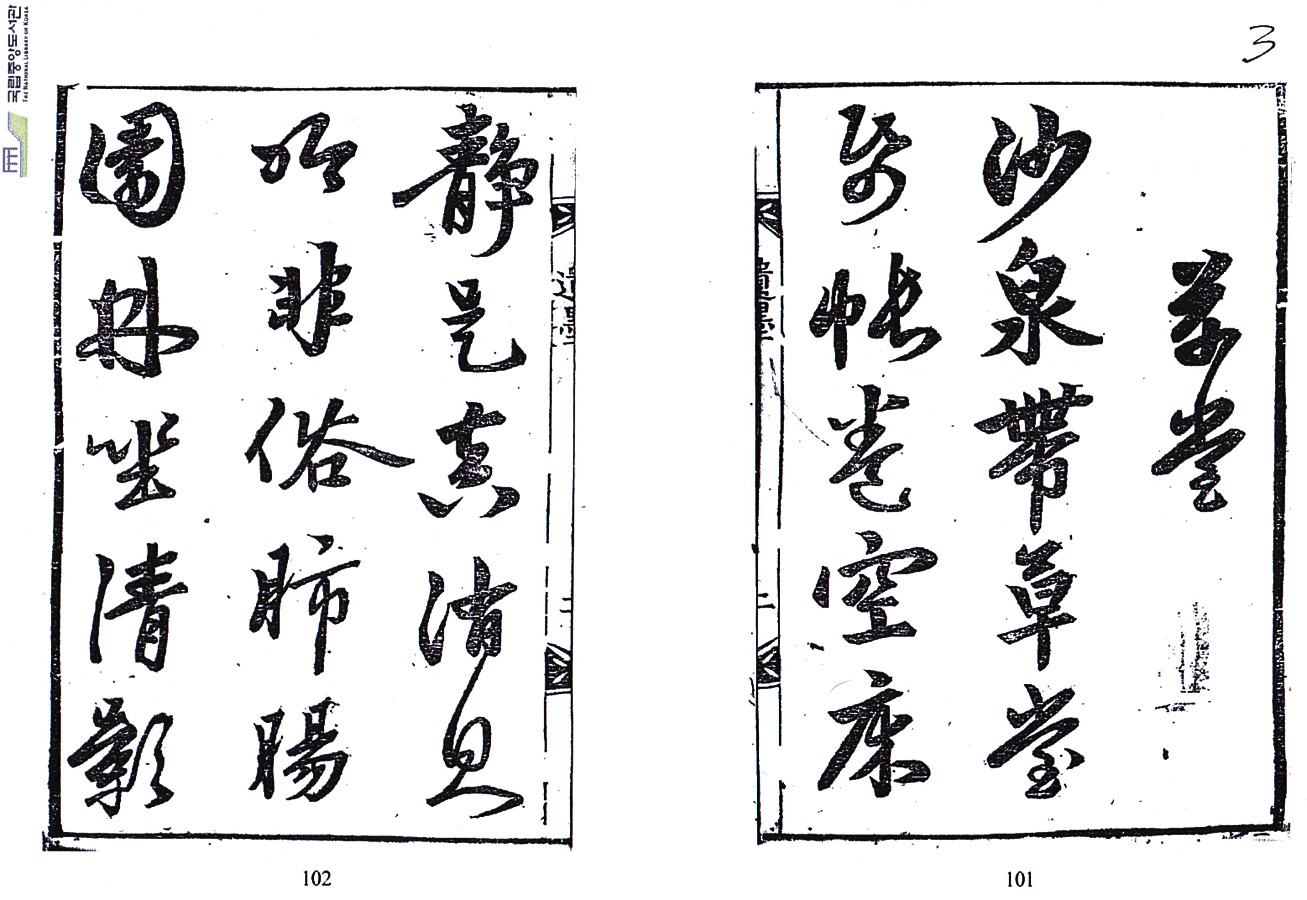 3
草堂
沙泉帶草堂
紙帳卷空床
遺墨
二
101
靜是真消息
吟非俗肺腸
園林坐清影
102
국립중앙도서관
THE NATIONAL LIBRARY OF KOREA